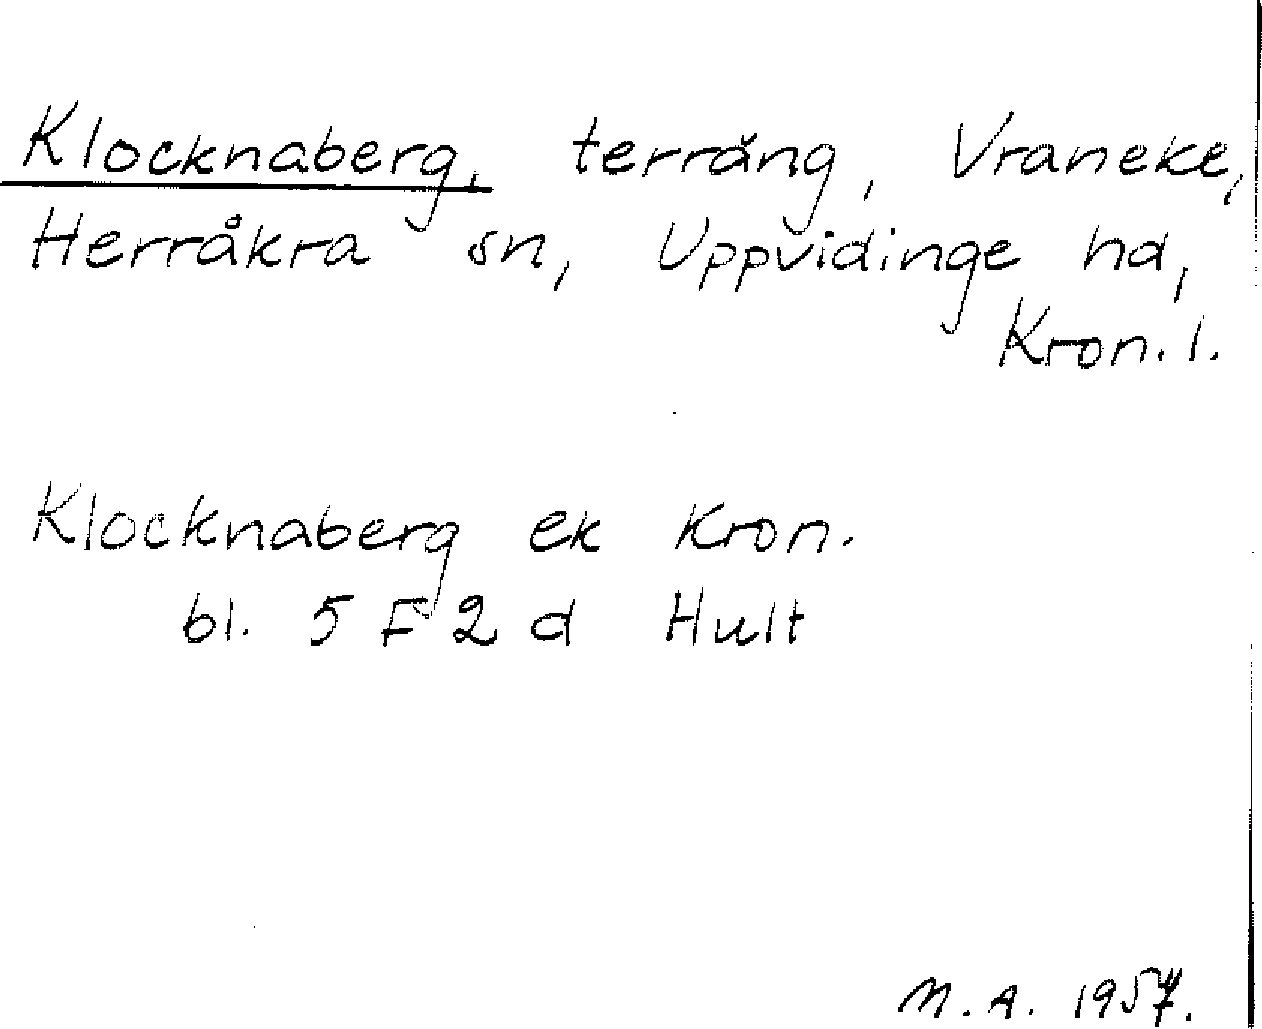 Klocknaberg, terräng, Vraneke,
Herråkra sn, Uppvidinge hd,
Kron. l.
Klocknaberg ek Kron.
bl. 5 F 2 d Hult
M. A. 1957.